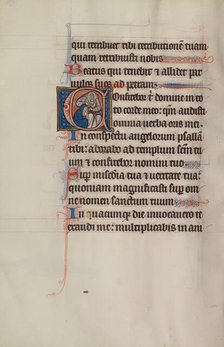 qui retribuet tibi retributionem tuam
quam retribuisti nobis
Beatus qui tenebit ⁊ allidet par
uulos suos ad petram
Confitebor t̄ domine in to
to corde meo: qm̄ audisti
omnia uerba oris mei.
In conspectu angelorum psallā
tibi: adorabo ad templum sc̄m tu
um ⁊ confitebor nomini tuo
Sup mīa tua ⁊ ueritate tua:
quoniam magnificasti sup om
ne nomen sanctum tuum
In quacumq; die inuocauero te
exaudi me: multiplicabis in ani